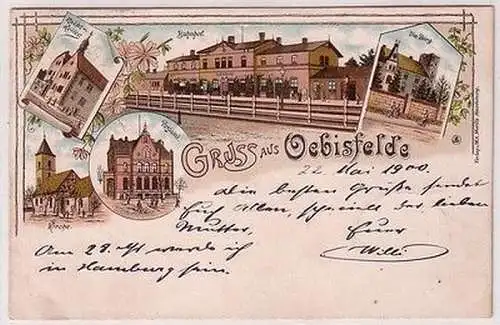 Bahnhof.
Die Burg
Kirche.
GRUSS AUS Oebisfelde
22 Mai 1900.
die besten Grüße sendet
Euch Allen, speciell der lieben
Mutter,
Euer
Willi
Am 28. werde ich
in Hamburg sein.